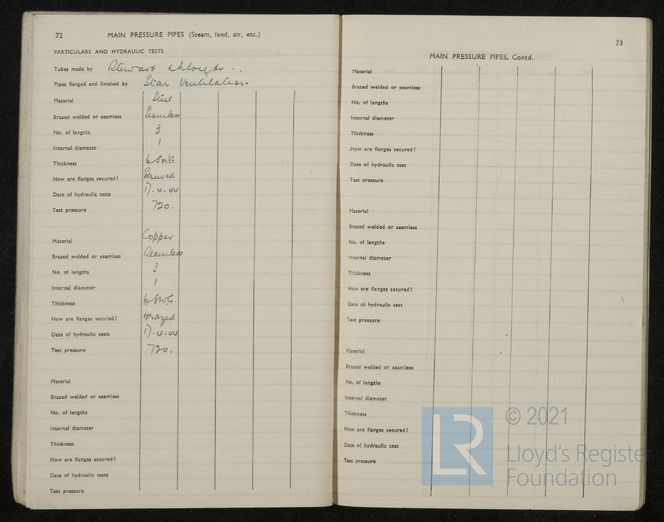 72 MAIN PRESSURE PIPES (Steam, feed, air, etc.)
PARTICULARS AND HYDRAULIC TESTS
Tubes made by Stewart & Lloyds
Pipes flanged and finished by Star Ventilation
Material Steel
Brazed welded or seamless Seamless
No. of lengths 3
Internal diameter 1
Thickness 6 SWG.
How are flanges secured? Screwed
Date of hydraulic tests 17.4.44
Test pressure 720.
Material Copper
Brazed welded or seamless Seamless
No. of lengths 3
Internal diameter 1
Thickness 6 SWG.
How are flanges secured? Brazed
Date of hydraulic tests 17.4.44
Test pressure 720.
Material
Brazed welded or seamless
No. of lengths
Internal diameter
Thickness
How are flanges secured?
Date of hydraulic tests
Test pressure
73
MAIN PRESSURE PIPES, Contd.
Material
Brazed welded or seamless
No. of lengths
Internal diameter
Thickness
How are flanges secured?
Date of hydraulic test
Test pressure
Material
Brazed welded or seamless
No. of lengths
Internal diameter
Thickness
How are flanges secured?
Date of hydraulic tests
Test pressure
Material
Brazed welded or seamless
No. of lengths
Internal diameter
Thickness
How are flanges secured?
Date of hydraulic test
Test pressure
LR
© 2021
Lloyd's Register
Foundation